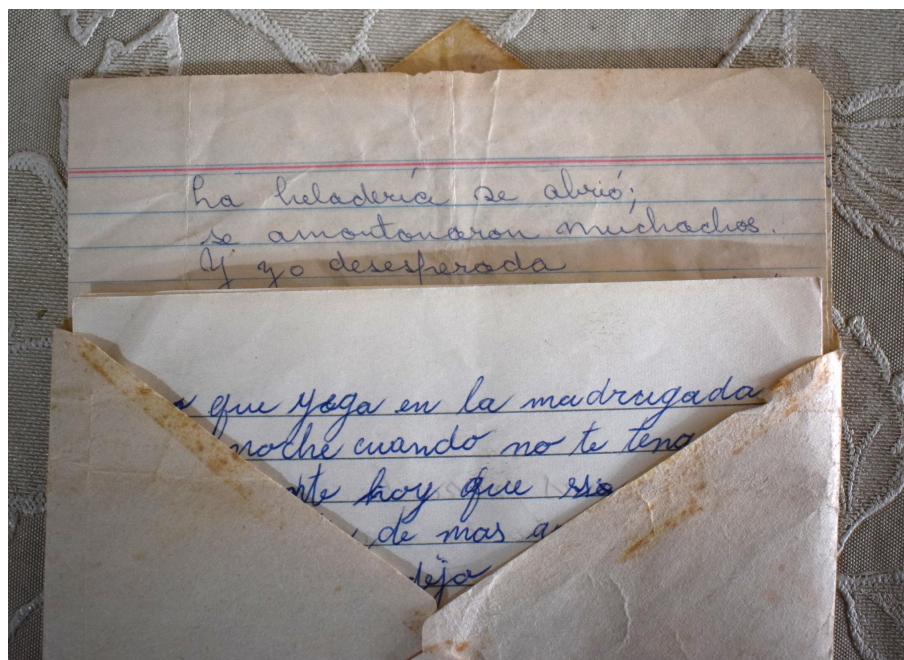 La heladería se abrió;
se amontonaron muchachos.
Y yo desesperada
que yoga en la madrugada
noche cuando no te
hoy que
de mas
deja